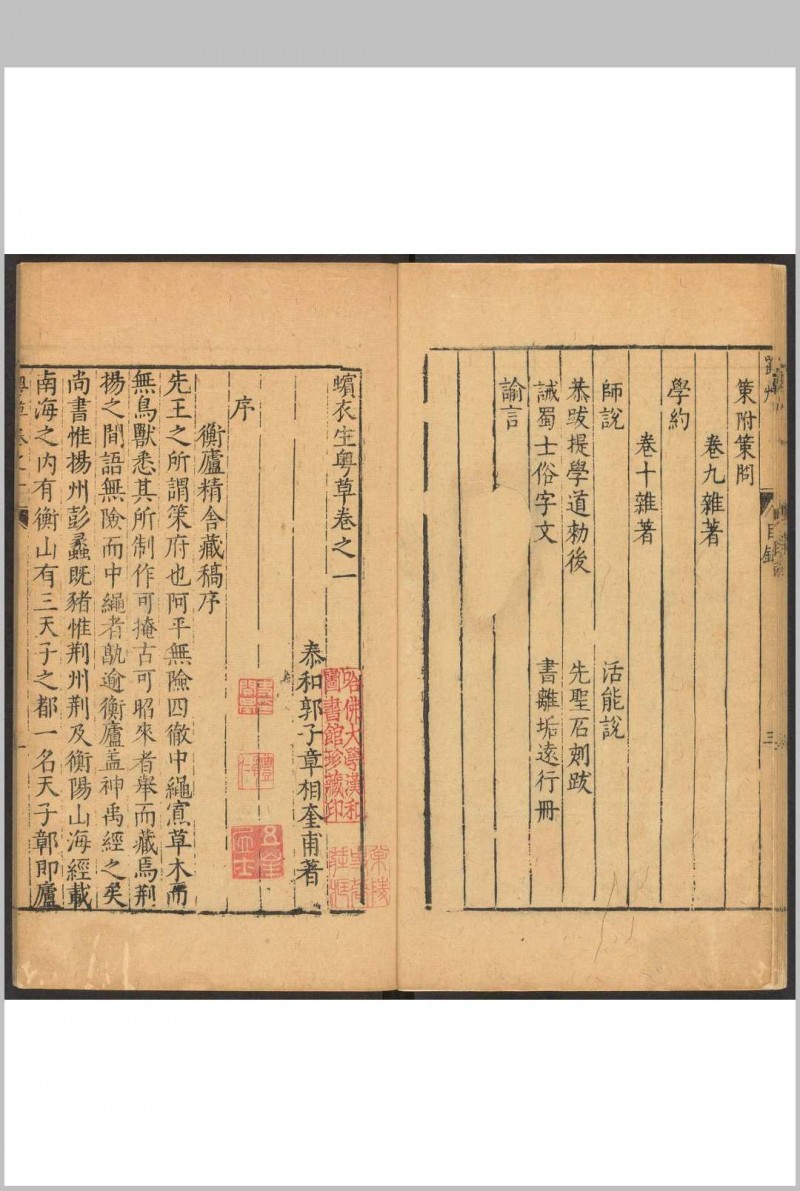 策附策問
卷九雜著
學約
卷十雜著
師說 活能說
恭跋提學道勑後 先聖石刻跋
誡蜀士俗字文 書離垢遠行冊
諭言
目錄
三
蠙衣生粤草卷之一
泰和郭子章相奎甫著
哈佛大學漢和
圖書館珍藏印
序
衡廬精舍藏稿序
先王之所謂策府也阿平無險四徹中繩寡草木而
無鳥獸悉其所制作可掩古可昭來者舉而藏焉荆
揚之間語無險而中繩者孰逾衡廬盖神禹經之矣
尚書惟揚州彭蠡既豬惟荆州荆及衡陽山海經載
南海之內有衡山有三天子之都一名天子鄣即廬